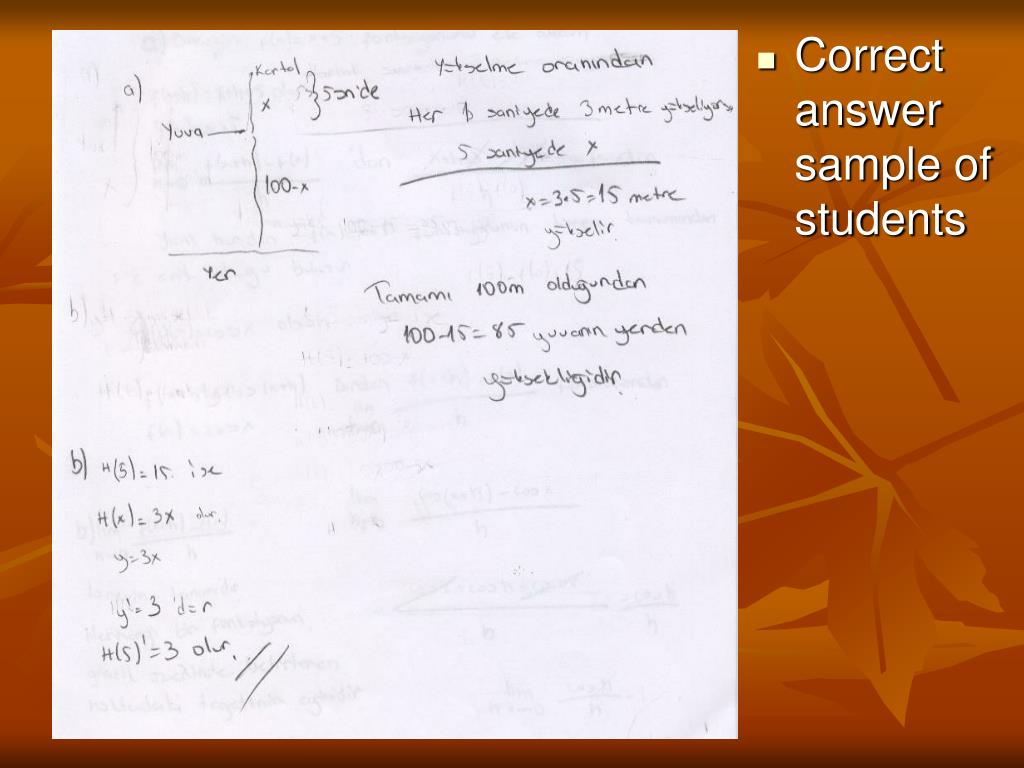 a)
Kartal
x
5 sn'de
Yuva
100-x
Yer
Yükselme oranından
Her 1 saniyede 3 metre yükseliyorsa
5 saniyede x
x=3.5=15 metre
yükselir.
Tamamı 100m olduğundan
100-15=85 yuvanın yerden
yüksekliğidir.
b) H(5)=15 ise
H(x)=3x olur.
y=3x
y'=3 'd=r
H(5)'=3 olur.
Correct
answer
sample of
students